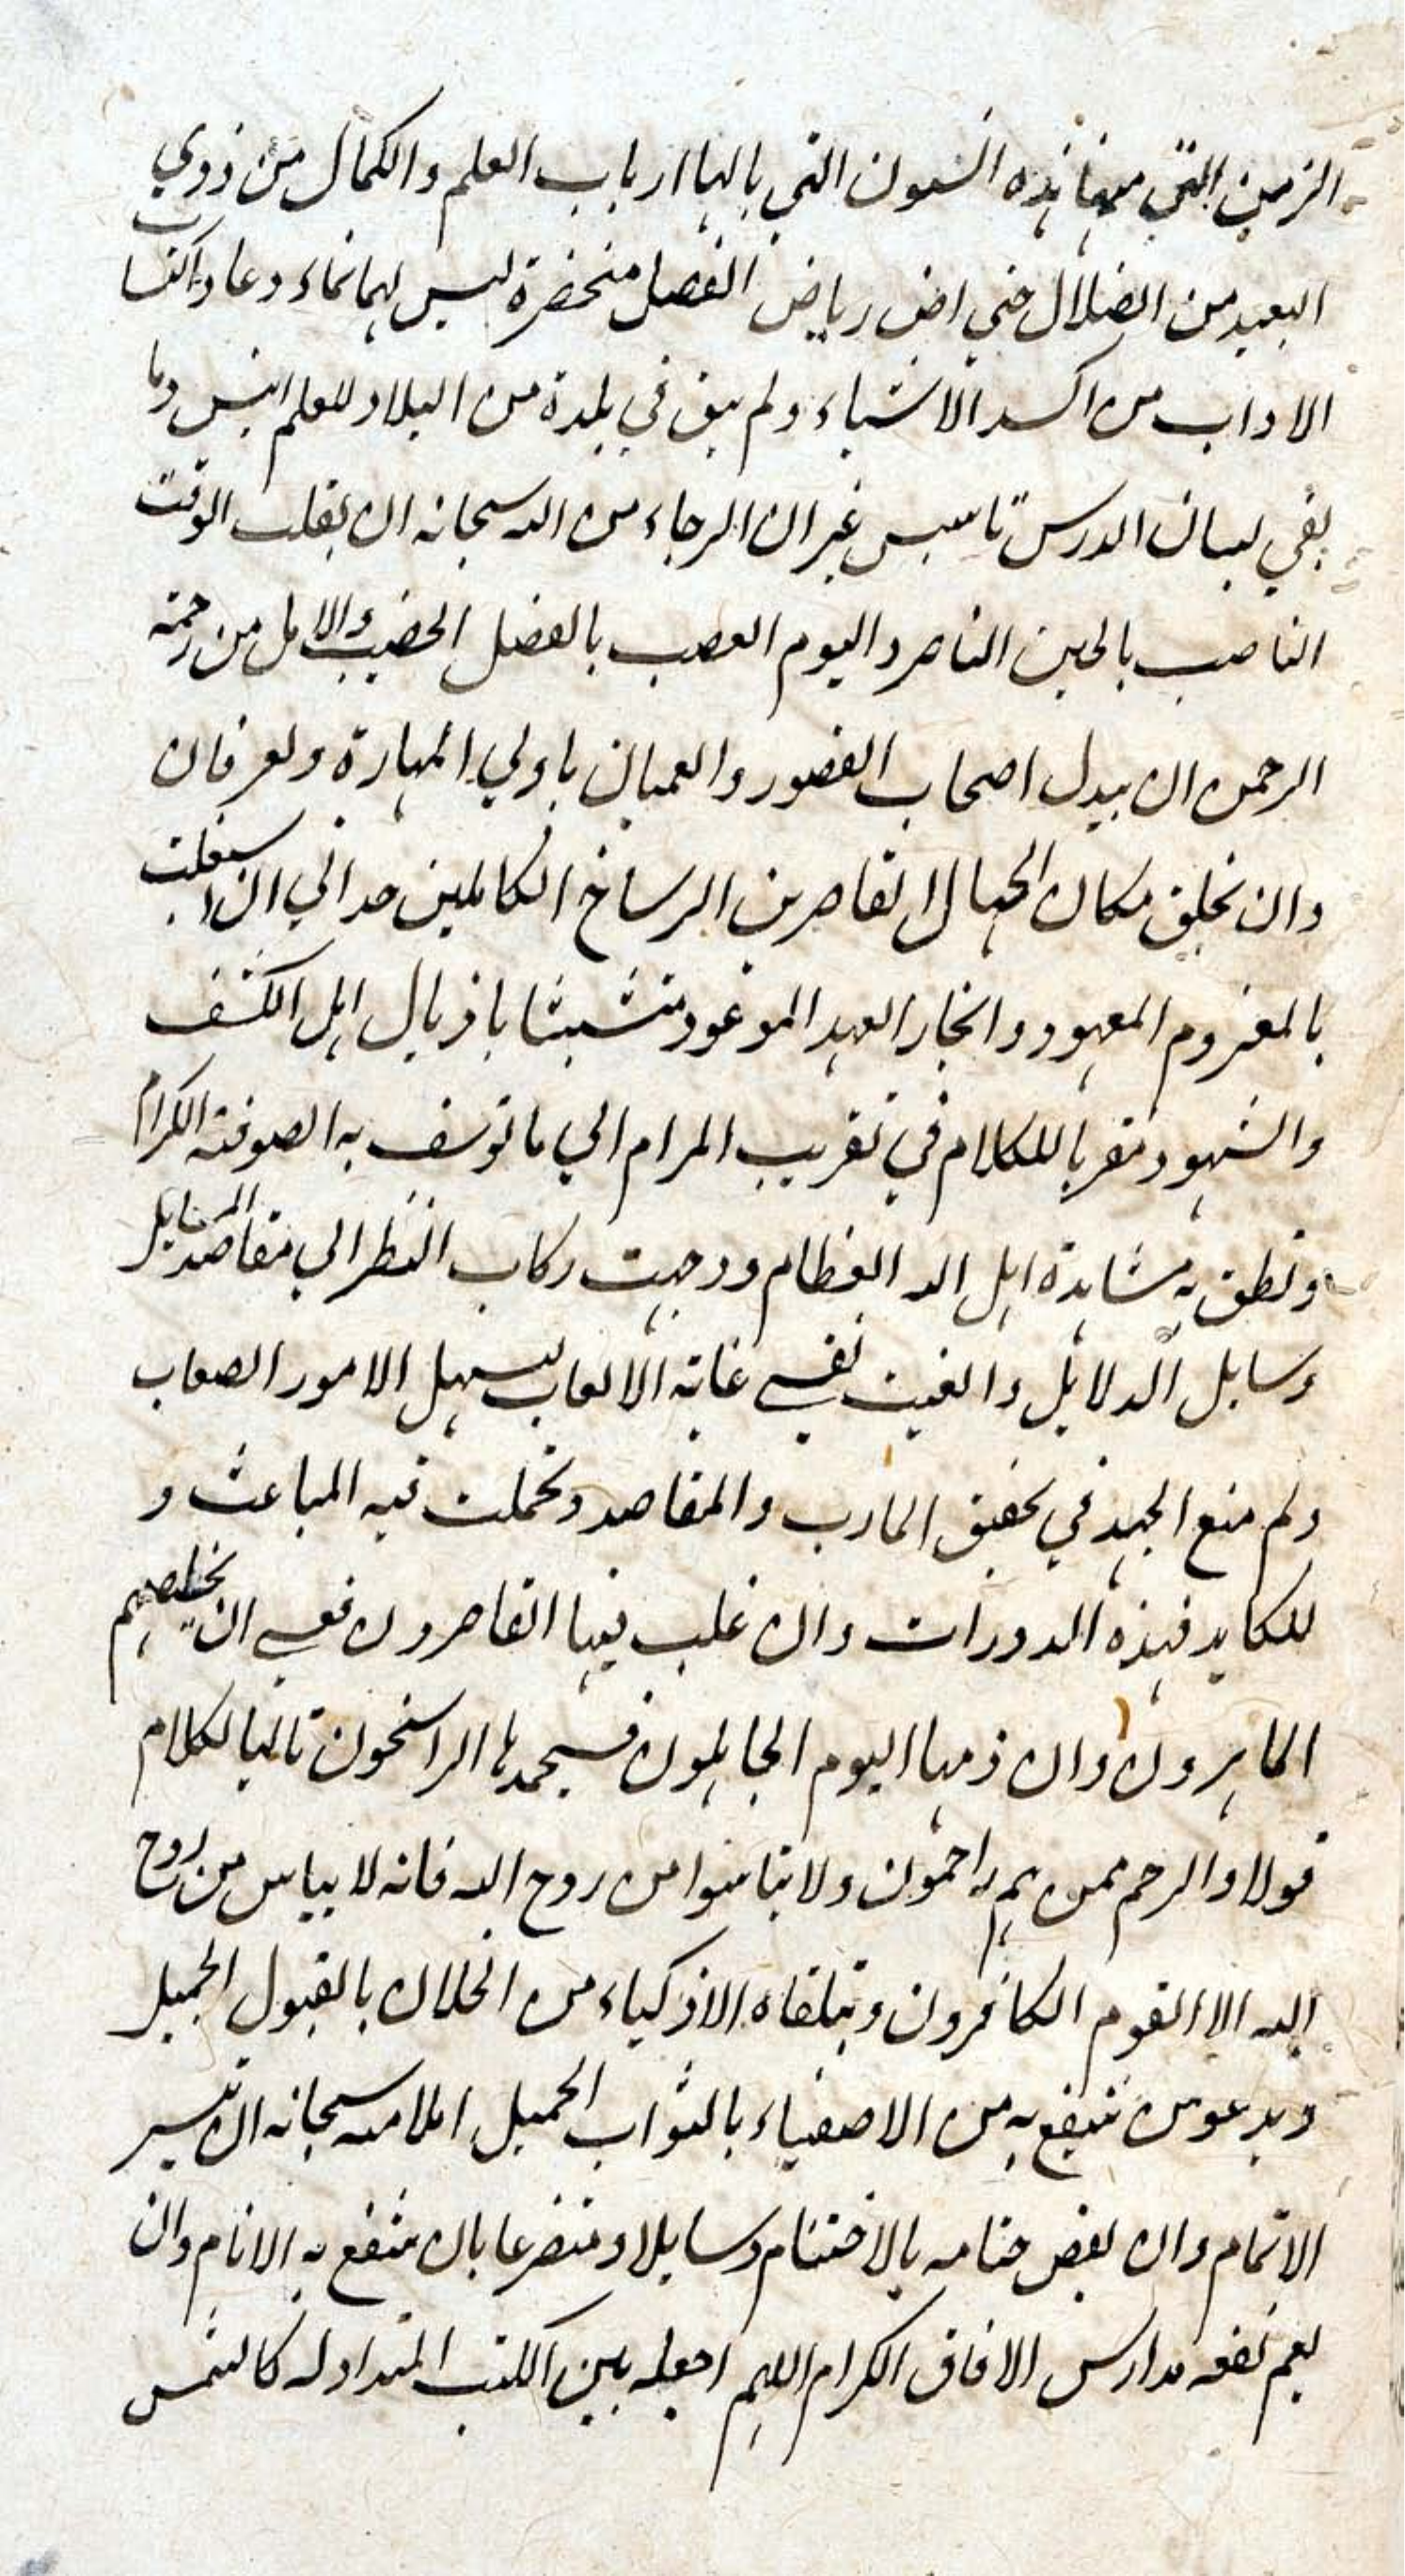 الزمن التي منها هذه السنون التي بالها ارباب العلم والكمال من ذوي
البعيد من الضلال حتي اض رياض الفضل منحضرة ليس لها نماء وعاد اكتساب
الاداب من اكسد الاشياء ولم يبق في بلدة من البلاد للعلم انيس وما
بقي لبيان الدرس تاسيس غير ان الرجاء من الله سبحانه ان يقلب الوقت
الناصب بالحين الناصر واليوم العصب بالفضل الخضيب والامل من رحمة
الرحمن ان يبدل اصحاب القصور والعميان باولي المهارة والعرفان
وان يخلق مكان الجهال القاصرين الرساخ الكاملين حداني ان اشتغلت
بالمعزوم المعهود وانجاز العهد الموعود متشبثا باذيال اهل الكشف
والشهود مقربا للكلام في تقريب المرام الي ما توسف به الصوفية الكرام
ونطق به مشاهدة اهل الله العظام ووجهت ركاب النظر الي مقاصد المسايل
وسايل الدلايل والغيت نفسي غاية الالعاب لتسهيل الامور الصعاب
ولم منع الجهد في تحقيق المارب والمقاصد وتحملت فيه المباعث و
للكايد فهذه المدورات وان غلب فيها القاصرون فعسي ان يخلصهم
الماهرون وان ذمها اليوم الجاهلون فسيحمدها الراسخون تاليا لكلام
قولا والرحم ممن هم راحمون ولا تياسوا من روح الله فانه لا يياس من روح
الله الا القوم الكافرون ويتلقاه الاذكياء من الخلان بالقبول الجميل
ويدعو من ينتفع به من الاصفياء بالثواب الجميل املا منه سبحانه ان تيسير
الاتمام وان يفض ختامه بالاختتام وسايلا ومتضرعا بان ينتفع به الانام وان
يعم نفعه مدارس الافاق الكرام اللهم اجعله بين الكتب المتداوله كالشمس